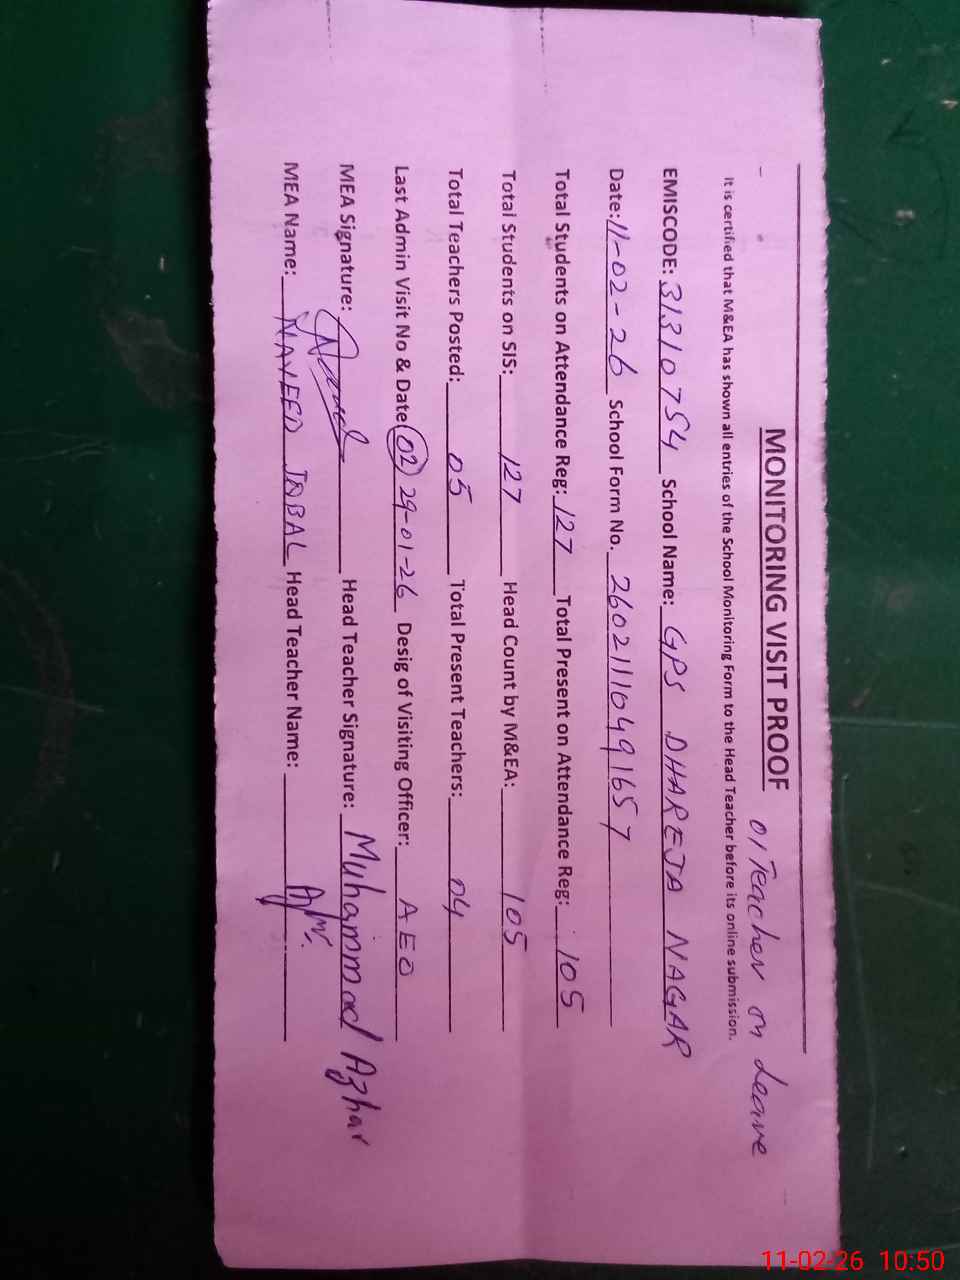 MONITORING VISIT PROOF 01 Teacher on Leave
It is certified that M&EA has shown all entries of the School Monitoring Form to the Head Teacher before its online submission.
EMISCODE: 31310754 School Name: GPS DHAREJA NAGAR
Date: 11-02-26 School Form No. 2602111049165 7
Total Students on Attendance Reg: 127 Total Present on Attendance Reg: 105
Total Students on SIS: 127 Head Count by M&EA: 105
Total Teachers Posted: 05 Total Present Teachers: 04
Last Admin Visit No & Date 02 29-01-26 Desig of Visiting Officer: AEO
MEA Signature: Head Teacher Signature: Muhammad Azhar
MEA Name: NAVEED IQBAL Head Teacher Name:
11-02-26 10:50